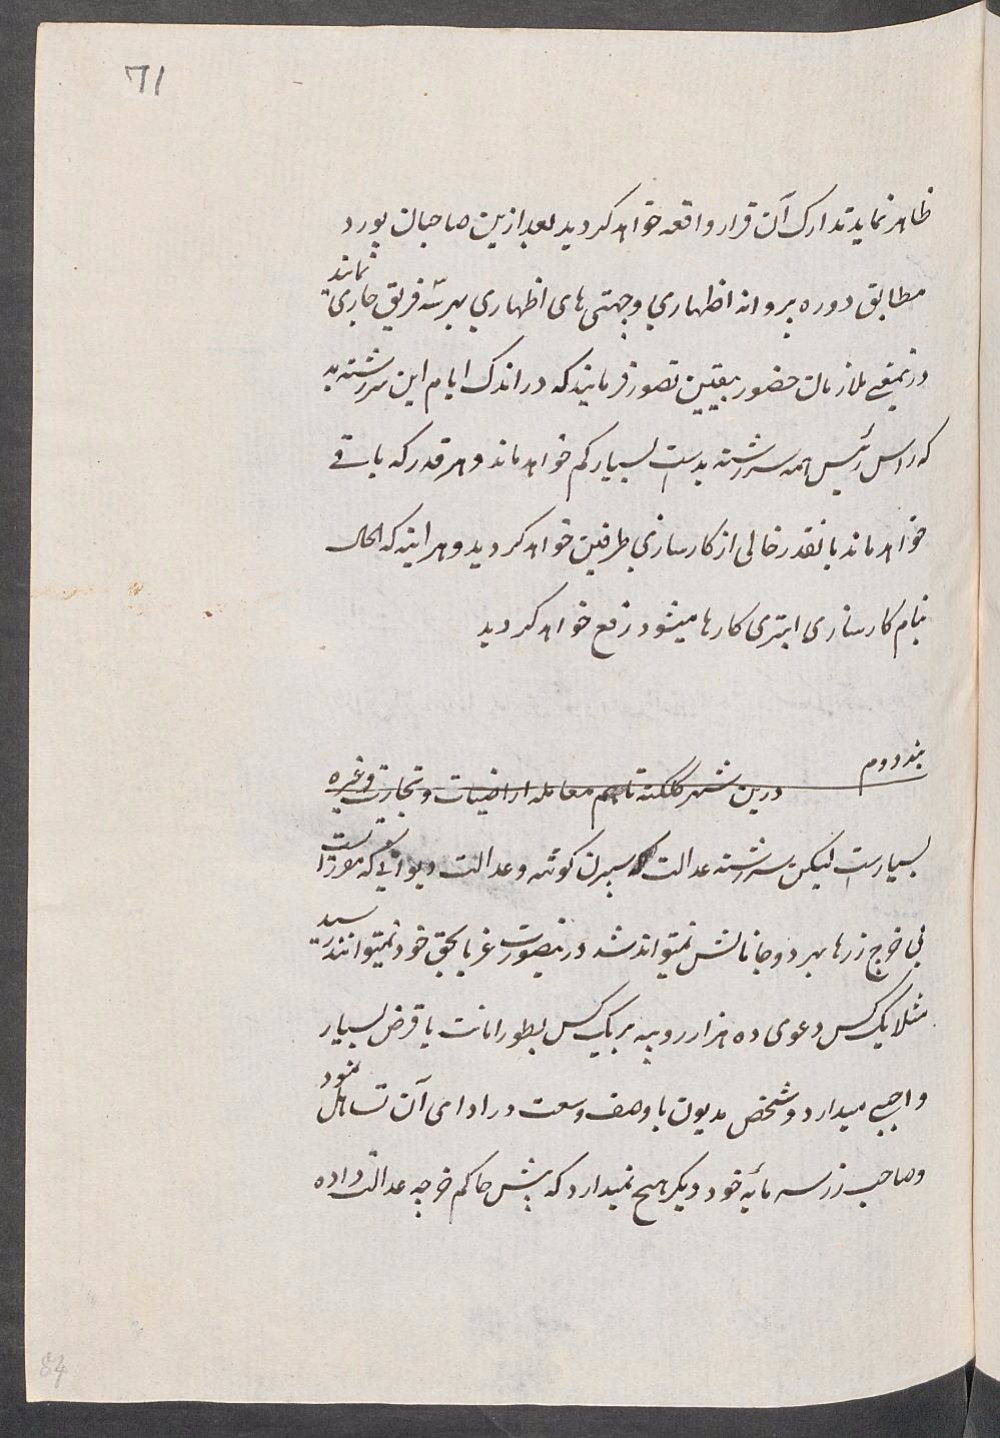 71
ظاهر نماید تدارک آن قرار واقعه خواهد کردید بعد ازین صاحبان بورد
مطابق دوره پروانه اظهاری و چهتی های اظهاری بهر سّه فریق جاری نمایند
درنمیقے ملازمان حضور بیقین تصور فرمایند که در اندک ایام این سررشته بد
که راس رئیس همه سررشته بدست بسیار کم خواهد ماند و هر قدر که باقے
خواهد ماند بانقدر خالی از کارسازی طرفین خواهد کردید و هر اینه که الحال
بنام کارسازی ابتری کارها میشود رفع خواهد کردید
بند دوم
درین شهر کلکته تاهم معامله اراضیات و تجارت وغیره
بسیارست لیکن سررشته عدالت که سپرن کوٹ و عدالت دیوانی که مقررست
بی خرج زرها بهر دو جا نالش نمیتواند شد درینصورت غربا بحق خود نمیتوانند رسید
مثلا یک کس دعوی ده هزار روپیه بر یک کس بطور امانت یا قرض بسیار
واجبے میدارد و شخص مدیون با وصف وسعت در ادای آن تساهل نمود
و صاحب زر سرمایهٔ خود دیکر هیچ نمیدارد که پیش حاکم خرچه عدالت داده
84